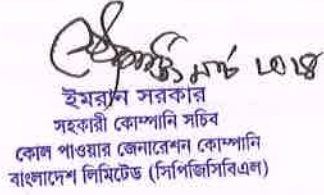 ইমরান সরকার
সহকারী কোম্পানি সচিব
কোল পাওয়ার জেনারেশন কোম্পানি
বাংলাদেশ লিমিটেড (সিপিজিসিবিএল)